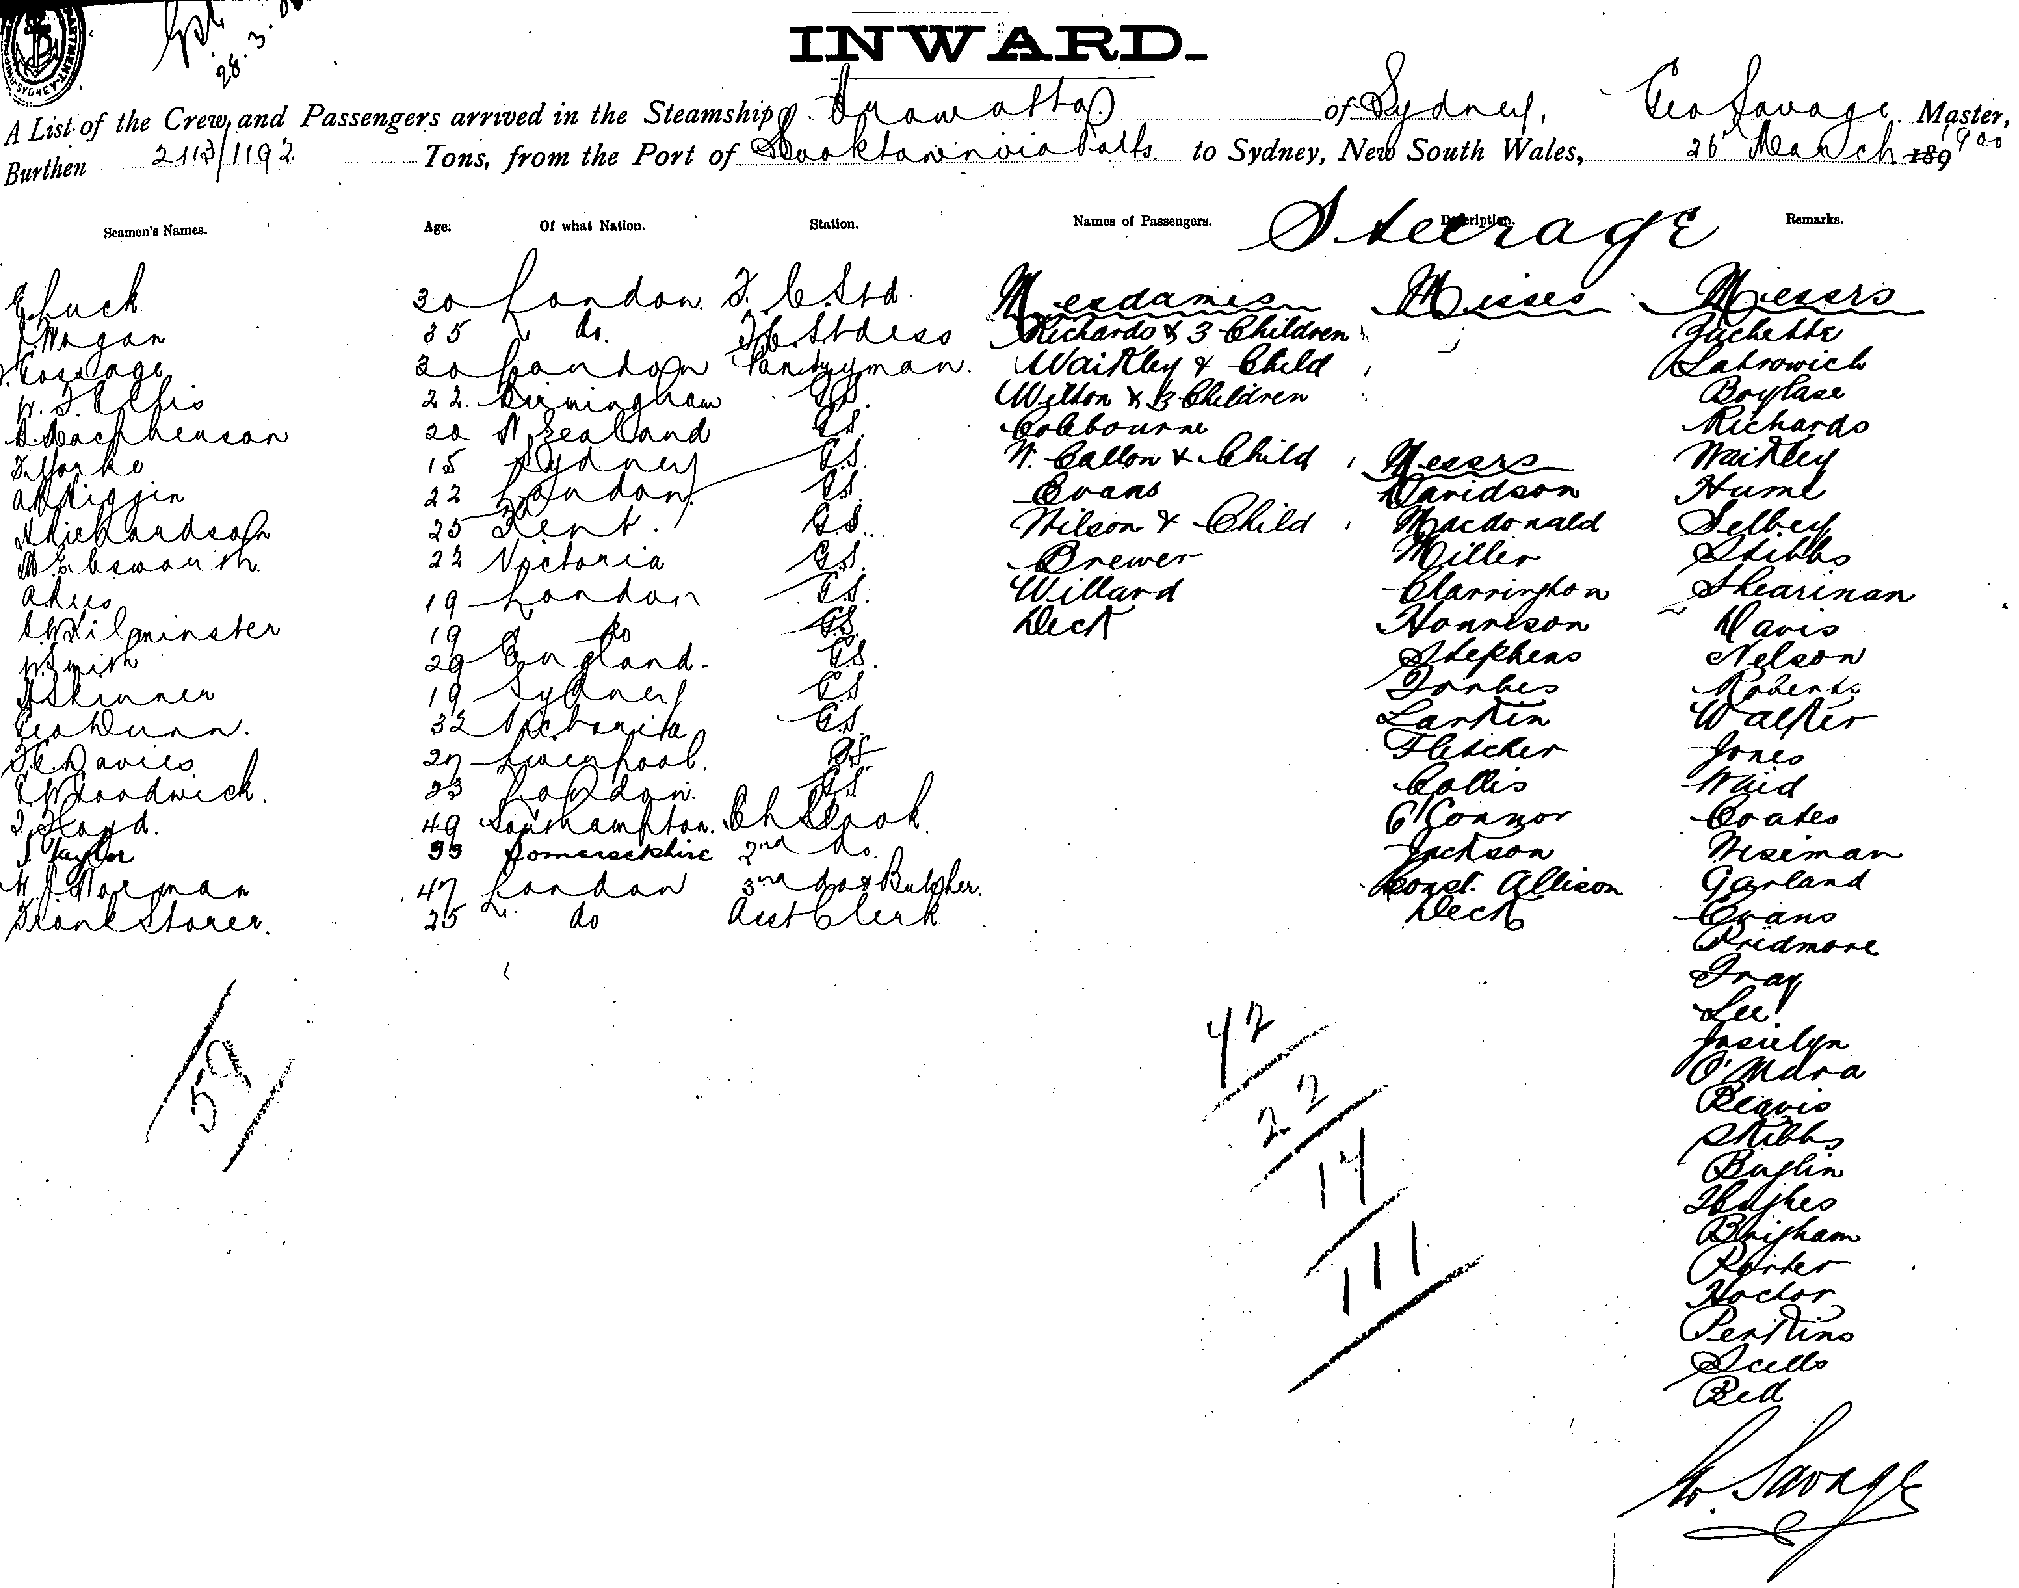 28.3.00
INWARD.
A List of the Crew and Passengers arrived in the Steamship Arawatta of Sydney, Geo Savage Master,
Burthen 2113/1192 Tons, from the Port of Cooktown via Ports to Sydney, New South Wales, 26 March 1900
Seamen's Names. Age. Of what Nation. Station. Names of Passengers. Description. Remarks.
Steerage
Luck 30 London F. C. Std. Mesdames Misses Messrs
Hogan 35 do. F.C. Stdess Richards & 3 Children
30 London Pantryman. Waitkley & Child Labrowich
W. F. Ellis 22 Birmingham G.S. Wilton & 3 Children Boylase
20 N Zealand G.S. Colebourne Richards
15 Sydney G.S. W. Callon & Child Messrs Waitkley
22 London G.S. Evans Davidson Hume
Richardson 25 Kent. G.S. Wilson & Child Macdonald Selbey
Ebsworth 22 Victoria G.S. Brewer Miller Stibbs
19 London G.S. Willard Clarrington Shearman
Wilminster 19 do G.S. Deck Harrison Davis
W Smith 29 England. G.S. Stephens Nelson
A Skinner 19 Sydney G.S. Forbes Roberts
Geo Dunn. 32 Victoria G.S. Larkin Walker
Davies 27 Liverpool. G.S. Fletcher Jones
23 London. G.S. Collis Waid
49 Southampton. Ch Cook. O'Connor Coates
J Taylor 33 Somersetshire 2nd do. Jackson Wiseman
Norman 47 London 3rd do & Butcher. Const. Allison Garland
Frank Storer. 25 do Asst Clerk Deck Evans
Pridmore
Gray
Lee
Joselyn
O'Mara
Beavis
Stibbs
Buglin
Hughes
Brigham
Porter
Hoctor
Perkins
Scells
Reid
59
42
22
14
111
G. Savage